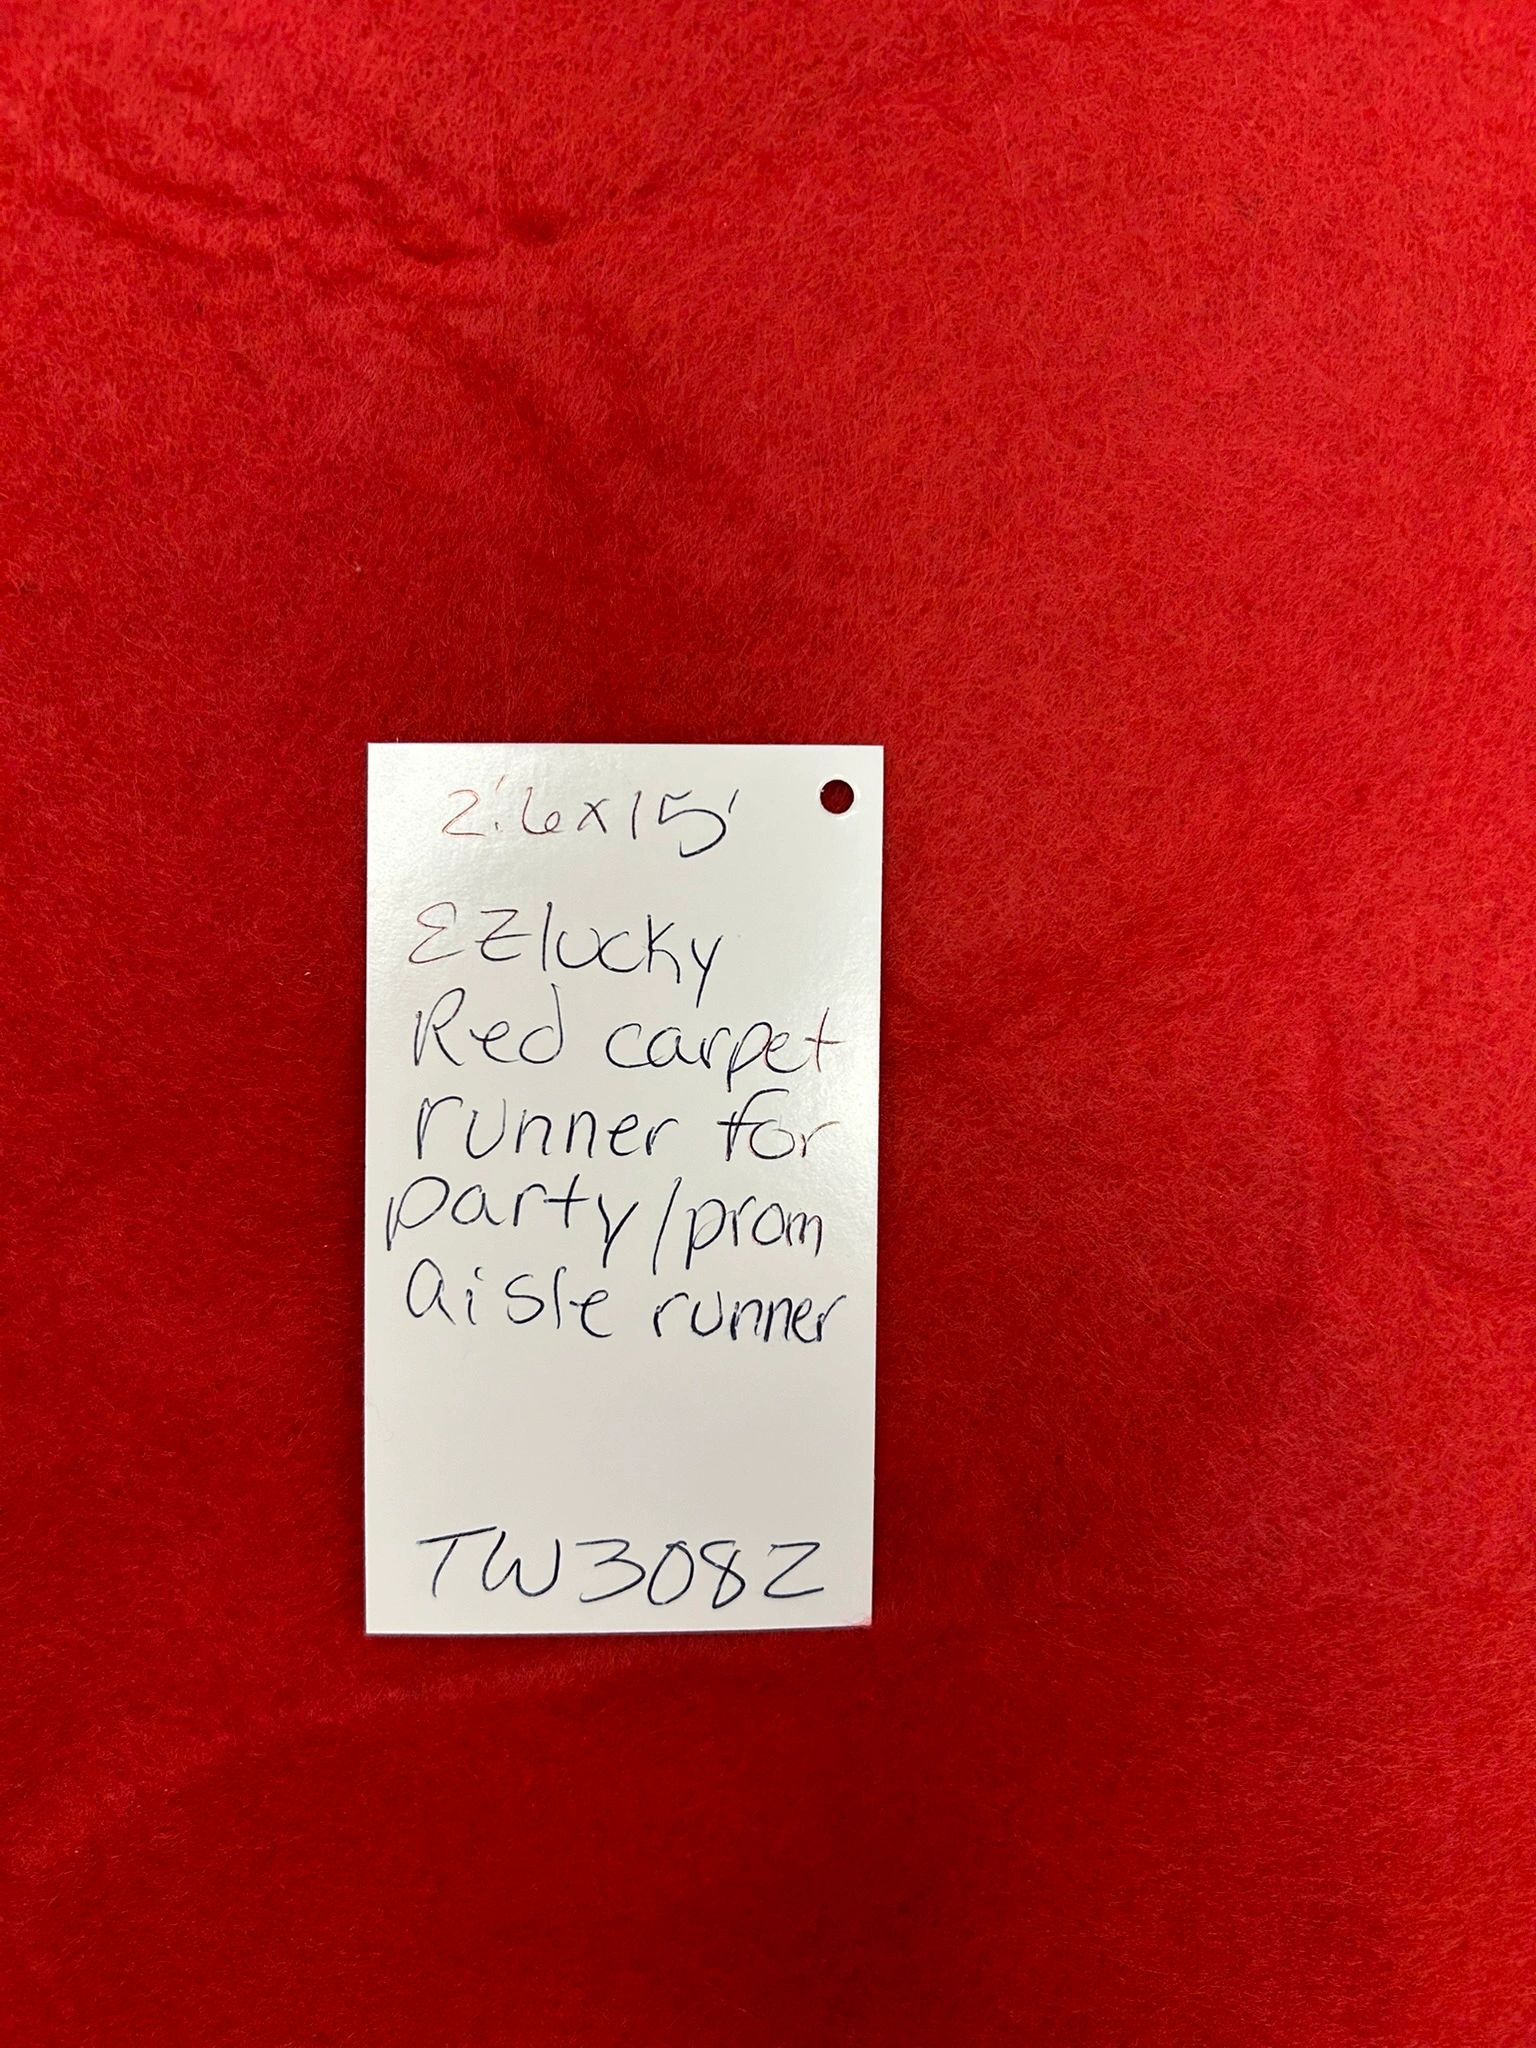 2'.6x15'
EZlucky
Red carpet
runner for
party/prom
aisle runner
TW3082